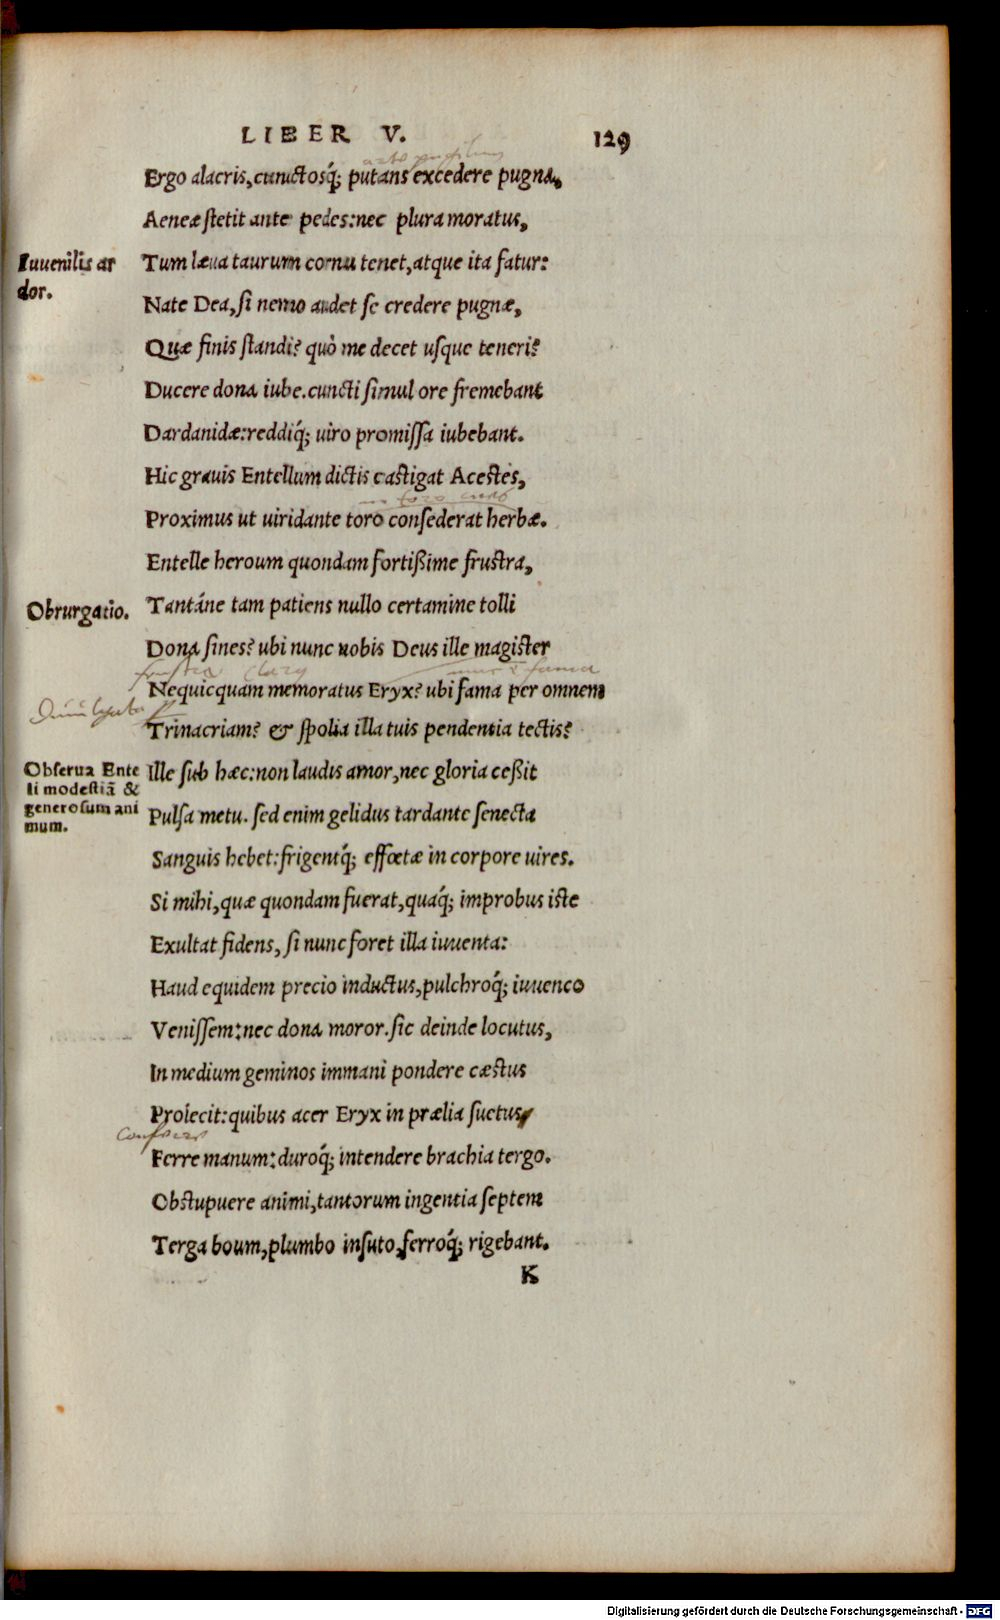 LIBER V. 129
Ergo alacris, cunctosq́; putans excedere pugna,
Aeneæ stetit ante pedes: nec plura moratus,
Iuuenilis ar
dor.
Tum læua taurum cornu tenet, atque ita fatur:
Nate Dea, si nemo audet se credere pugnæ,
Quæ finis standi? quò me decet usque teneri?
Ducere dona iube. cuncti simul ore fremebant
Dardanidæ: reddiq́; uiro promissa iubebant.
Hic grauis Entellum dictis castigat Acestes,
Proximus ut uiridante toro consederat herbæ.
Entelle heroum quondam fortißime frustra,
Obrurgatio.
Tantáne tam patiens nullo certamine tolli
Dona sines? ubi nunc nobis Deus ille magister
frustra
fama
Nequicquam memoratus Eryx? ubi fama per omnem
Trinacriam? & spolia illa tuis pendentia tectis?
Obserua Ente
li modestiã &
generosum ani
mum.
Ille sub hæc: non laudis amor, nec gloria ceßit
Pulsa metu. sed enim gelidus tardante senecta
Sanguis hebet: frigentq́; effœtæ in corpore uires.
Si mihi, quæ quondam fuerat, quaq́; improbus iste
Exultat fidens, si nunc foret illa iuuenta:
Haud equidem precio inductus, pulchroq́; iuuenco
Venissem: nec dona moror. sic deinde locutus,
In medium geminos immani pondere cæstus
Proiecit: quibus acer Eryx in prælia suetus,
Ferre manum: duroq́; intendere brachia tergo.
Obstupuere animi, tantorum ingentia septem
Terga boum, plumbo insuto, ferroq́; rigebant.
K
Digitalisierung gefördert durch die Deutsche Forschungsgemeinschaft - DFG